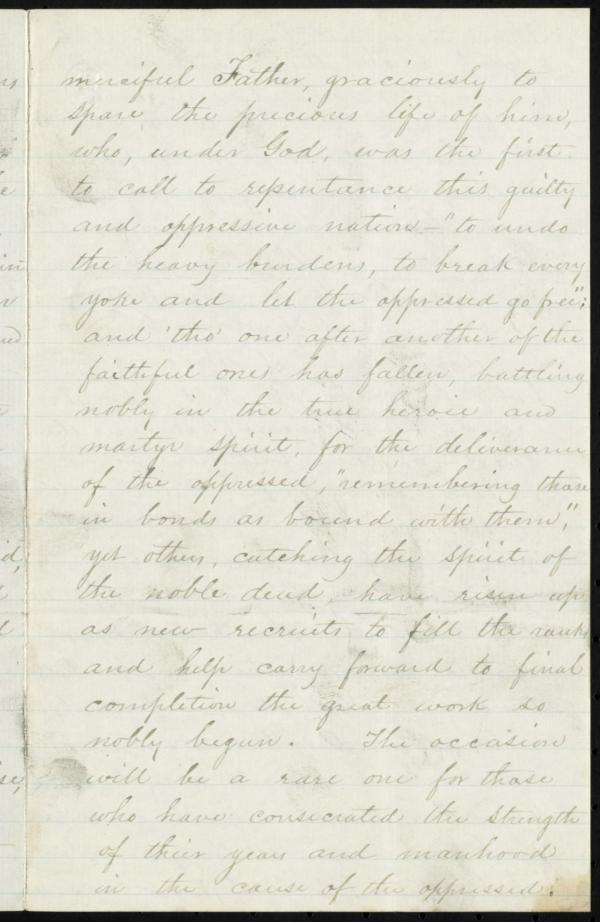 merciful Father, graciously to
spare the precious life of him,
who, under God, was the first
to call to repentance this guilty
and oppressive nation—"to undo
the heavy burdens, to break every
yoke and let the oppressed go free";
and 'tho' one after another of the
faithful ones has fallen, battling
nobly in the true heroic and
martyr spirit, for the deliverance
of the oppressed, "remembering those
in bonds as bound with them",
yet others, catching the spirit of
the noble dead, have risen up
as new recruits to fill the ranks
and help carry forward to final
completion the great work so
nobly begun. The occasion
will be a rare one for those
who have consecrated the strength
of their years and manhood
in the cause of the oppressed.